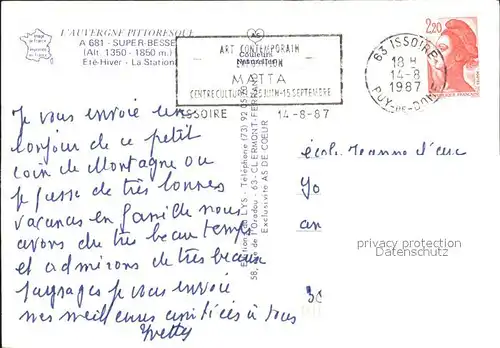 L'AUVERGNE PITTORESQUE
A 681 - SUPER-BESSE
(Alt. 1350 - 1850 m.)
Eté-Hiver - La Station
Couleurs
Naturelles
ART CONTEMPORAIN
EXPOSITION
MATTA
CENTRE CULTUREL 25 JUIN-15 SEPTEMBRE
ISSOIRE 14-8-87
63 ISSOIRE
18 H
14-8
1987
PUY-DE-DOME
2,20
Je vous envoie un
bonjour de ce petit
coin de Montagne où
je passe de très bonnes
vacances en famille nous
avons du très beau temps
et admirons de très beaux
paysages je vous envoie
mes meilleures amitiées à tous
Yvette
Editions du LYS - Téléphone (73) 92
58, Rue de l'Oradou - 63-CLERMONT-FERRAND
Exclusivité AS DE COEUR
école Jeanne d'arc
yo
an
privacy protection
Datenschutz